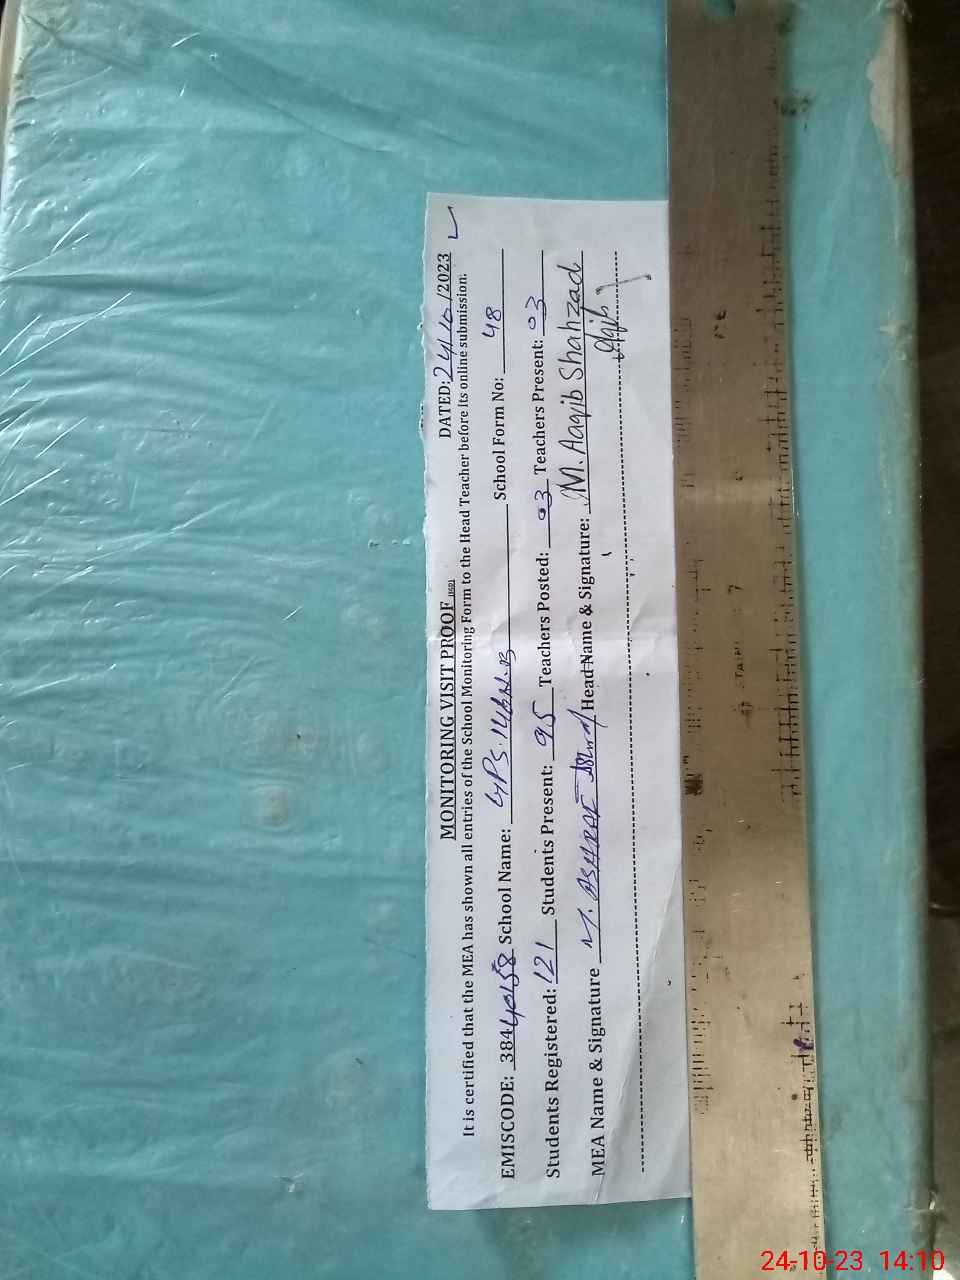 MONITORING VISIT PROOF DATED: 24/10/2023
It is certified that the MEA has shown all entries of the School Monitoring Form to the Head Teacher before its online submission.
EMISCODE: 38440158 School Name: GPS. 146 N.B School Form No: 48
Students Registered: 121 Students Present: 95 Teachers Posted: 03 Teachers Present: 03
MEA Name & Signature M. ASHRAF Head Name & Signature: M. Aaqib Shahzad
24-10-23 14:10